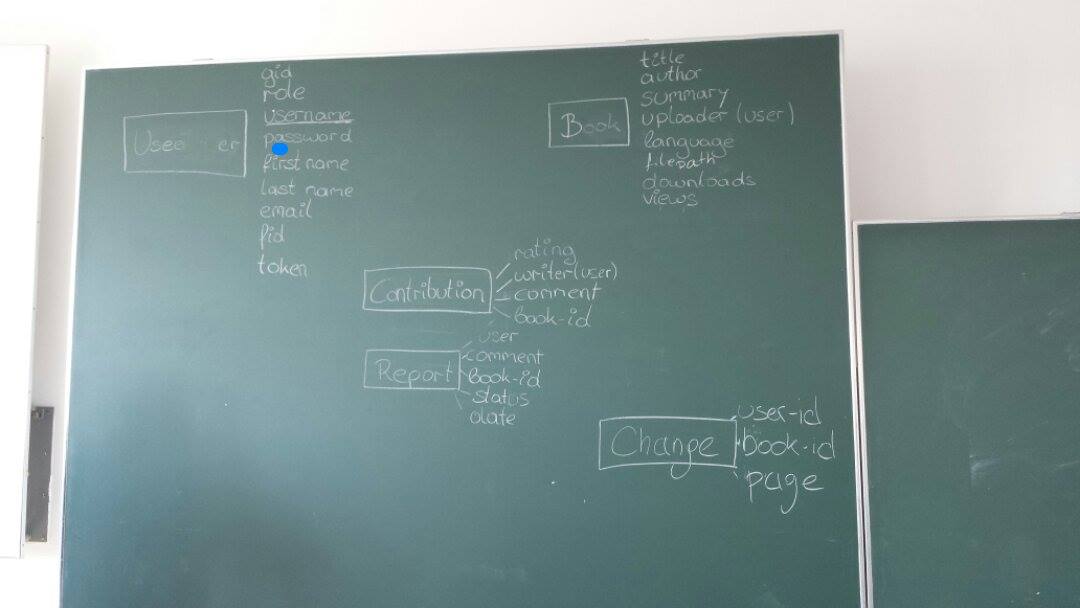 gid
role
username
password
first name
last name
email
fid
token
Book
title
author
summary
uploader (user)
language
filepath
downloads
views
Contribution
rating
writer(user)
comment
book-id
Report
user
comment
book-id
status
date
Change
user-id
book-id
page